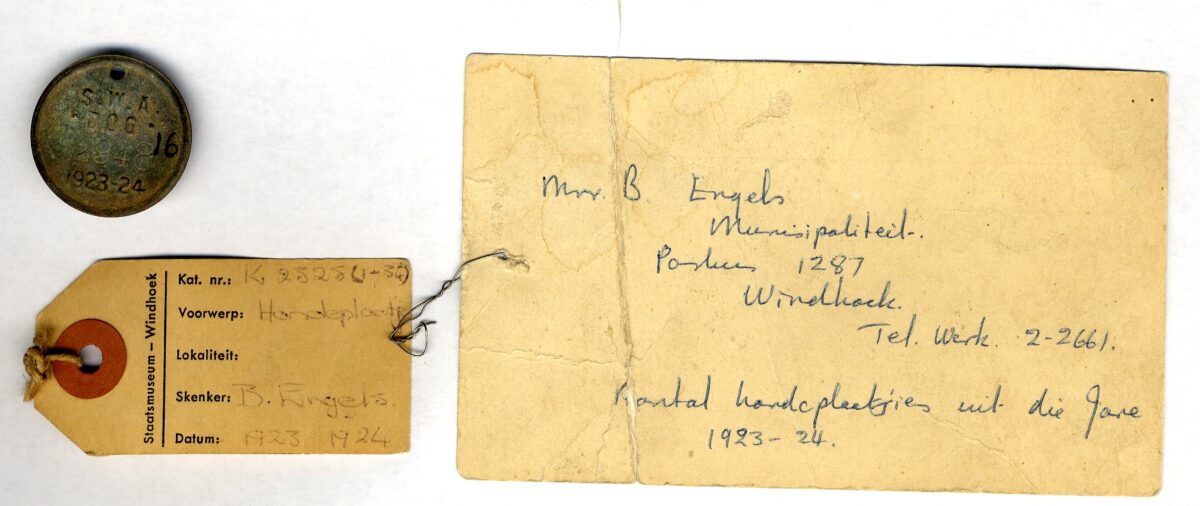 S.W.A.
DOG
16
1923-24
Staatsmuseum – Windhoek
Kat. nr.: K
Voorwerp: Hondeplaatj
Lokaliteit:
Skenker: B. Engels.
Datum: 1923 - 1924
Mnr. B. Engels
Munisipaliteit.
Posbus 1287
Windhoek.
Tel. Werk. 2-2661.
Aantal hondeplaatjies uit die Jare
1923-24.